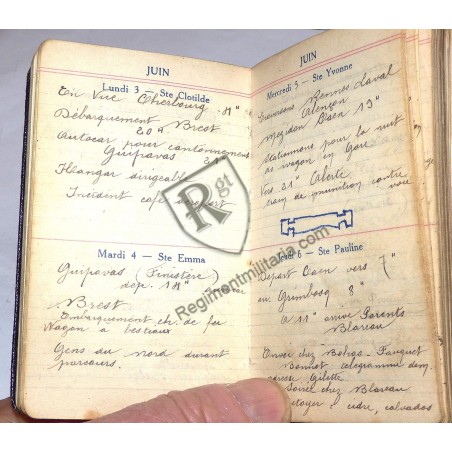 JUIN
Lundi 3 — Ste Clotilde
En Vue Cherbourg
Débarquement Brest
20 H
Autocar pour cantonnement
Guipavas
Hangar dirigeable
Incident café
Mardi 4 — Ste Emma
Guipavas (Finistère)
dep.
Brest
Embarquement ch. de fer
Wagon à bestiaux
Gens du Nord durant
parcours.
JUIN
Mercredi 5 — Ste Yvonne
Rennes Laval
Alençon
Mezidon Caen 19"
Stationnons pour la nuit
wagon en Gare
Vers 21" Alerte
train de munition contre
voie
Jeudi 6 — Ste Pauline
Départ Caen vers 7"
au Grimbosq 8"
à 11" arrivé Parents
Blareau
Envoi chez
télégramme
adresse Gilette
chez Blareau
cidre, calvados
Rgt
Regimentmilitaria.com